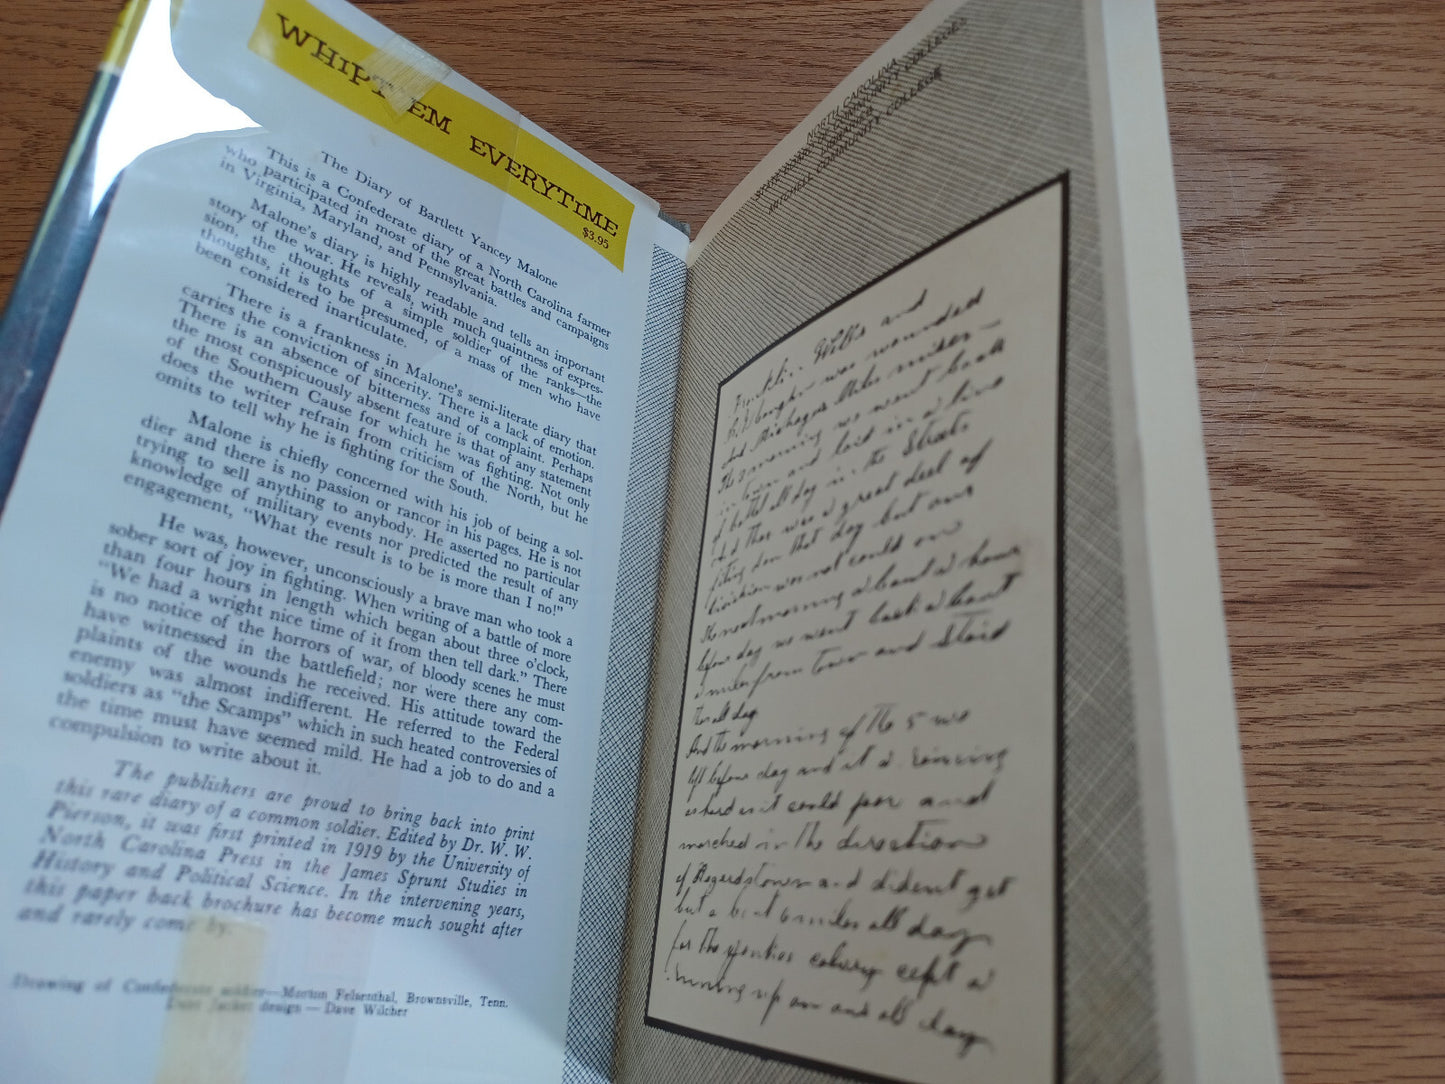 WHIPT 'EM EVERYTIME
$3.95
The Diary of Bartlett Yancey Malone
This is a Confederate diary of a North Carolina farmer
who participated in most of the great battles and campaigns
in Virginia, Maryland, and Pennsylvania.
Malone's diary is highly readable and tells an important
story of the war. He reveals, with much quaintness of expres-
sion, the thoughts of a simple soldier of the ranks—the
thoughts, it is to be presumed, of a mass of men who have
been considered inarticulate.
There is a frankness in Malone's semi-literate diary that
carries the conviction of sincerity. There is a lack of emotion.
There is an absence of bitterness and of complaint. Perhaps
the most conspicuously absent feature is that of any statement
of the Southern Cause for which he was fighting. Not only
does the writer refrain from criticism of the North, but he
omits to tell why he is fighting for the South.
Malone is chiefly concerned with his job of being a sol-
dier and there is no passion or rancor in his pages. He is not
trying to sell anything to anybody. He asserted no particular
knowledge of military events nor predicted the result of any
engagement, "What the result is to be is more than I no!"
He was, however, unconsciously a brave man who took a
sober sort of joy in fighting. When writing of a battle of more
than four hours in length which began about three o'clock,
"We had a wright nice time of it from then tell dark." There
is no notice of the horrors of war, of bloody scenes he must
have witnessed in the battlefield; nor were there any com-
plaints of the wounds he received. His attitude toward the
enemy was almost indifferent. He referred to the Federal
soldiers as "the Scamps" which in such heated controversies of
the time must have seemed mild. He had a job to do and a
compulsion to write about it.
The publishers are proud to bring back into print
this rare diary of a common soldier. Edited by Dr. W. W.
Pierson, it was first printed in 1919 by the University of
North Carolina Press in the James Sprunt Studies in
History and Political Science. In the intervening years,
this paper back brochure has become much sought after
and rarely come by.
Drawing of Confederate soldier—Marion Felsenthal, Brownsville, Tenn.
Dust Jacket design — Dave Wilcher
NORTH CAROLINA
MITCHELL COMMUNITY COLLEGE
Wills and
was wounded
And
The 3 morning we went back
in town and laid in a line
of battel all day in the Streets
And thar was a great deel of
fiting don that day but our
division was not could on
The next morning about a hour
before day we went back about
a miles from town and Staid
thar all day
And the morning of the 5 we
left before day and it a raining
as hard as it could poor and
marched in the direction
of Hagerdstown and dident get
but a bout 6 miles all day
for the yankies calvry cept a
running up on and all day